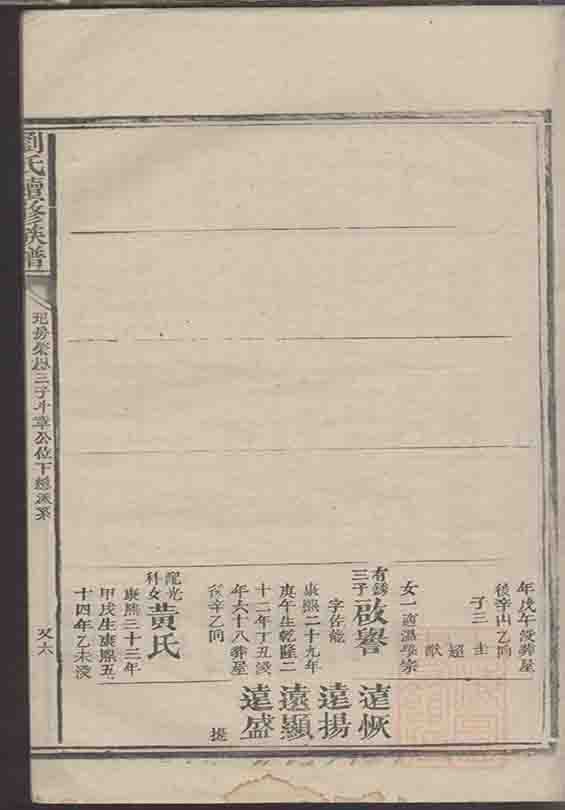 年戊午歿葬屋
後辛山乙向
子三 圭
超
猷
女一適溫學宗
有錦三子 啟譽
字佐龍
康熙二十九年
庚午生乾隆二
十二年丁丑歿
年六十八葬屋
後辛乙向
配光科女 黃氏
康熙三十三年
甲戌生康熙五
十四年乙未歿
遠恢
遠揚
遠顯
遠盛
提
劉氏續修族譜
三子斗章公位下總派系
又六